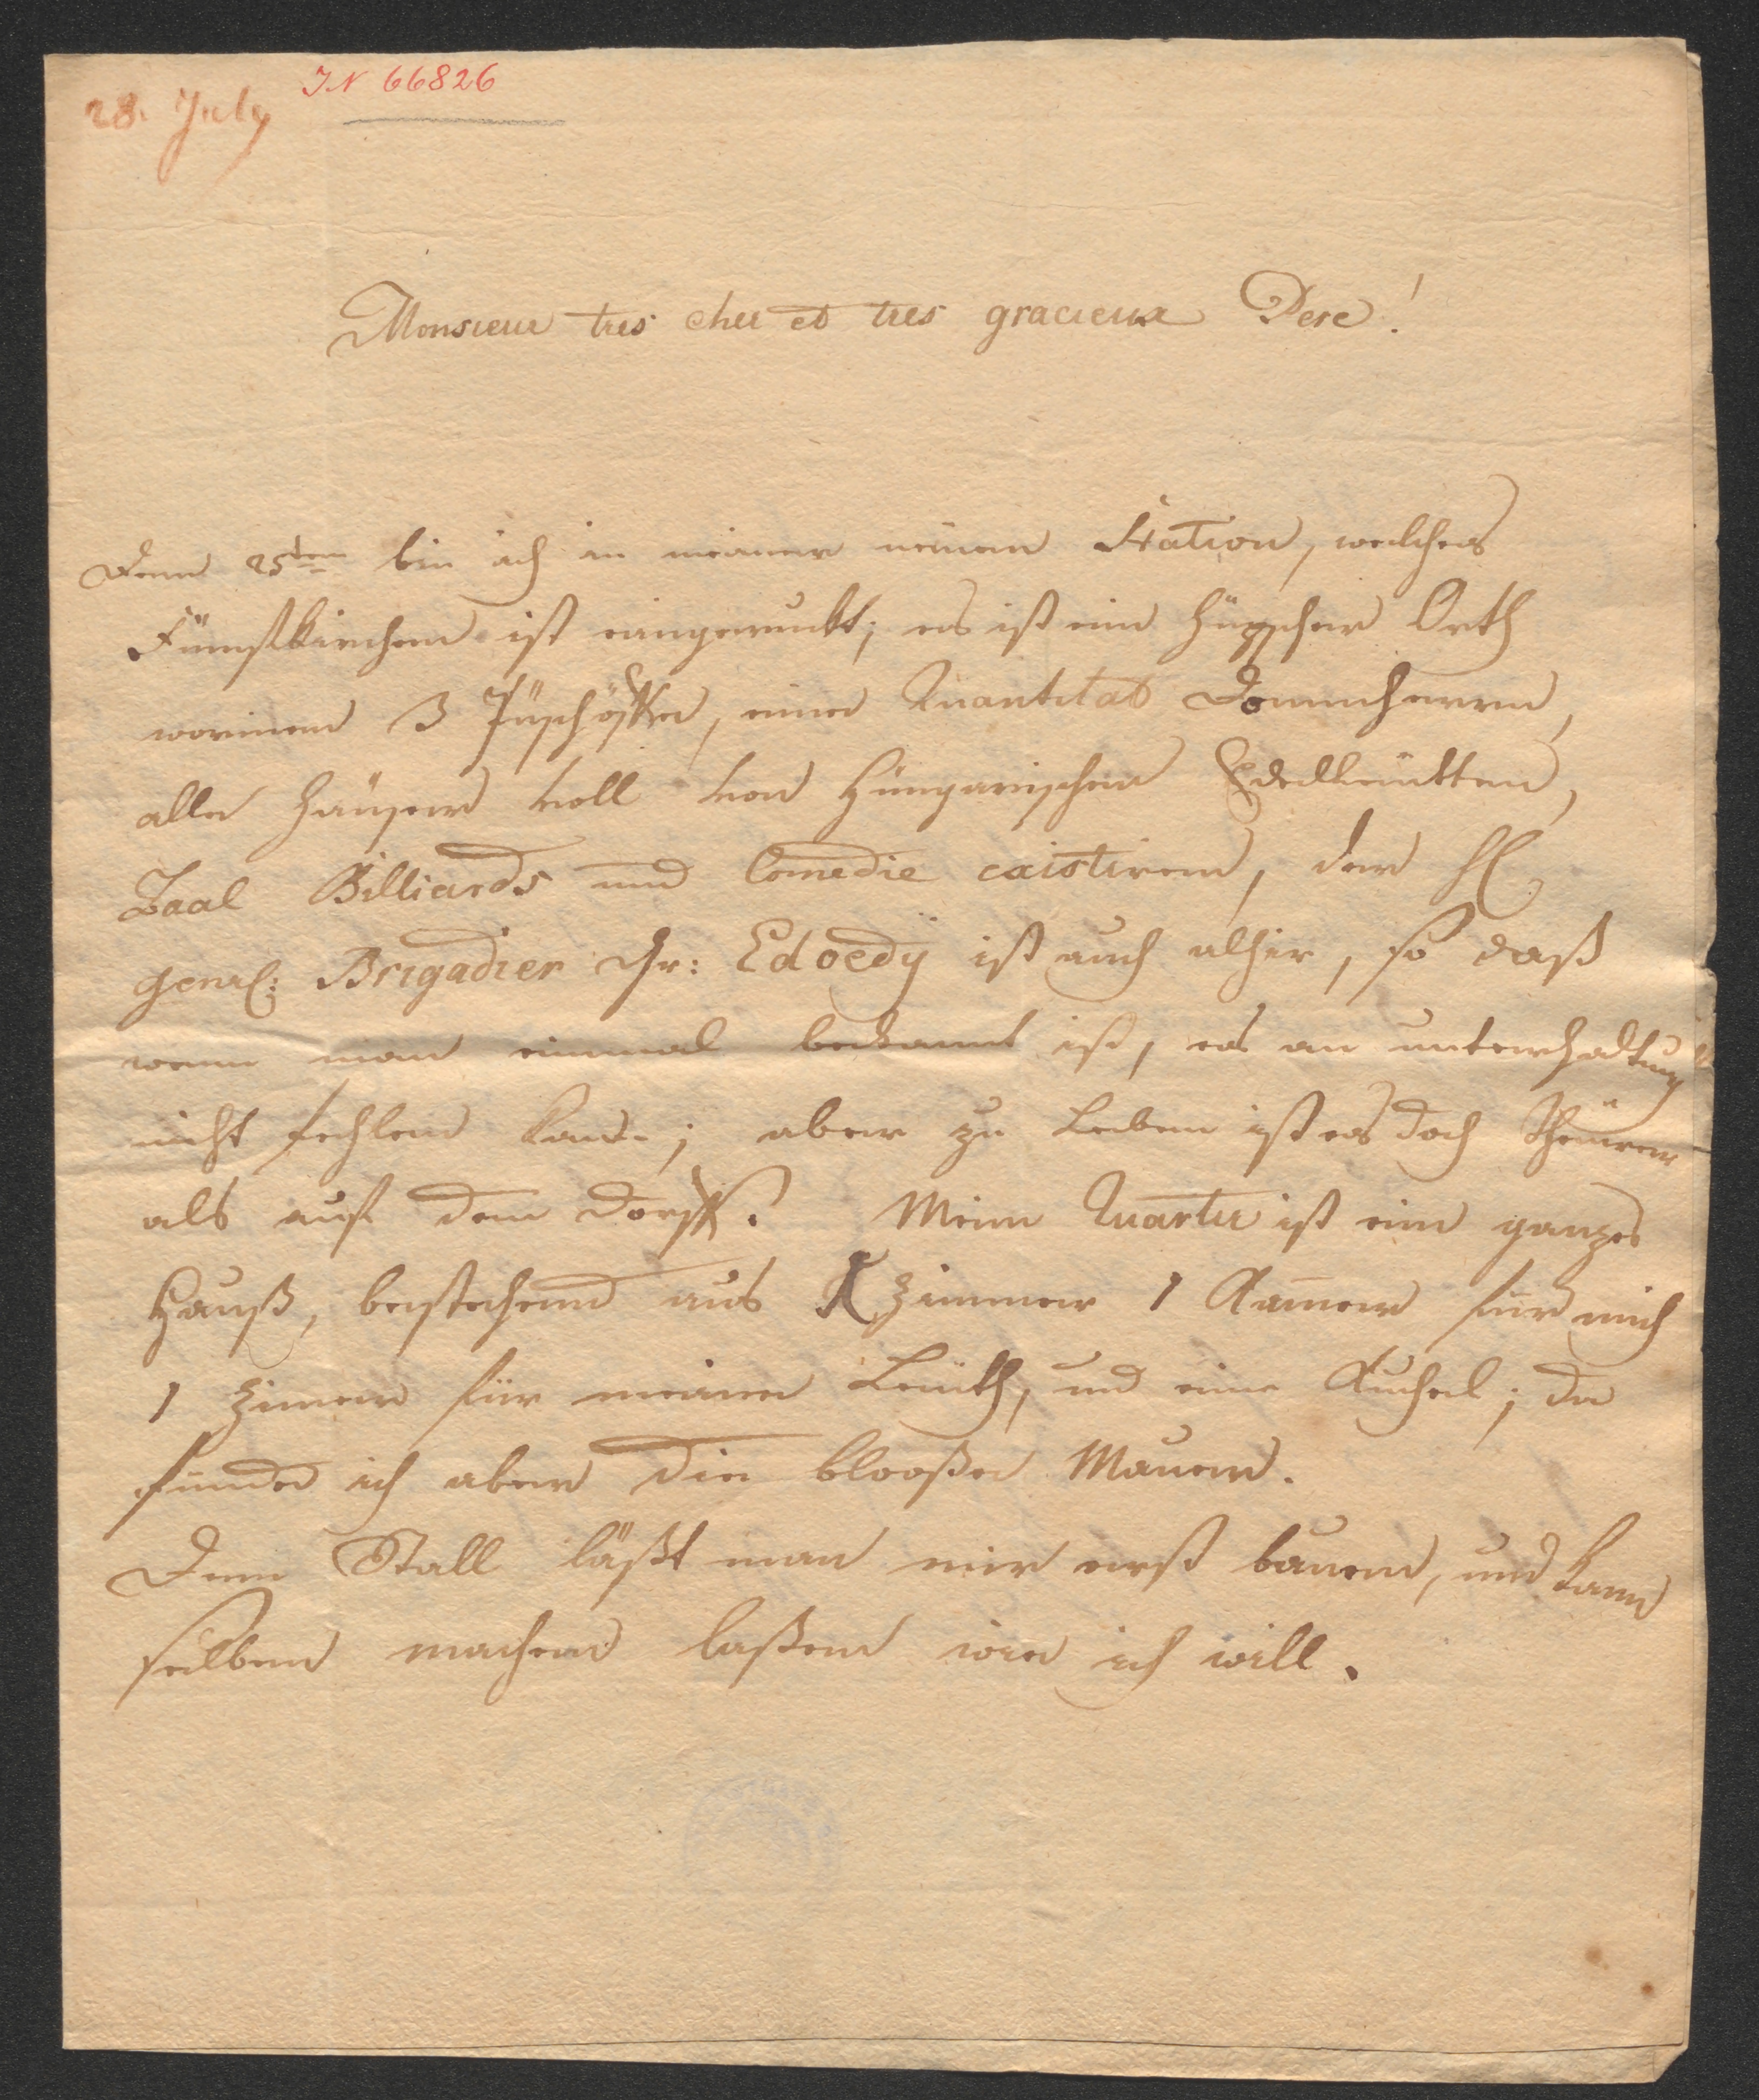 28. July
IN 66826
Monsieur tres cher et tres gracieux Pere!
Denn 25ten bin ich in meiner neuen Station, welches
Fünfkirchen ist eingeruckt; es ist ein hüpscher Orth
worinen 3 Püschöffe, eine Quantitat Dommherren,
alle Häuser voll von Hungarischen Edelleutten,
Baal Billiards und Comedie existiren, der H.
Genal: Brigadier Gr: Edoedÿ ist auch alhier, so daß
wenn man einmal bekannt ist, es an unterhaltung
nicht fehlen kan.; aber zu Leben ist es doch Theurer
als auf dem Dorff. Mein Quartir ist ein ganzes
Hauß, bestehend aus 1 Zimmer 1 Kamer für mich
1 Zimer für meine Leüth, und eine Kuchel; da
funde ich aber die bloosse Mauern.
Denn Stall läßt man mir erst bauen, und kann
selben machen lassen wie ich will.